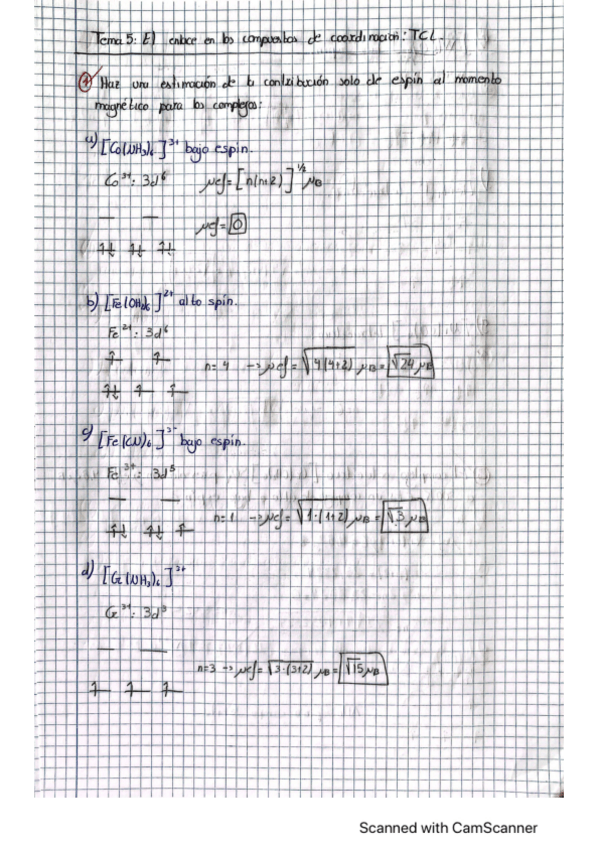 Tema 5: El enlace en los compuestos de coordinación: TCL.
① Haz una estimación de la contribución solo de espín al momento
magnético para los complejos:
a) [Co(NH₃)₆]³⁺ bajo espín.
Co³⁺: 3d⁶ μef = [n(n+2)]^1/2 μB
μef = 0
b) [Fe(OH₂)₆]²⁺ alto spin.
Fe²⁺: 3d⁶
n = 4 → μef = √4(4+2) μB = √24 μB
c) [Fe(CN)₆]³⁻ bajo espín.
Fe³⁺: 3d⁵
n = 1 → μef = √1·(1+2) μB = √3 μB
d) [Cr(NH₃)₆]³⁺
Cr³⁺: 3d³
n=3 → μef = √3·(3+2) μB = √15 μB
Scanned with CamScanner